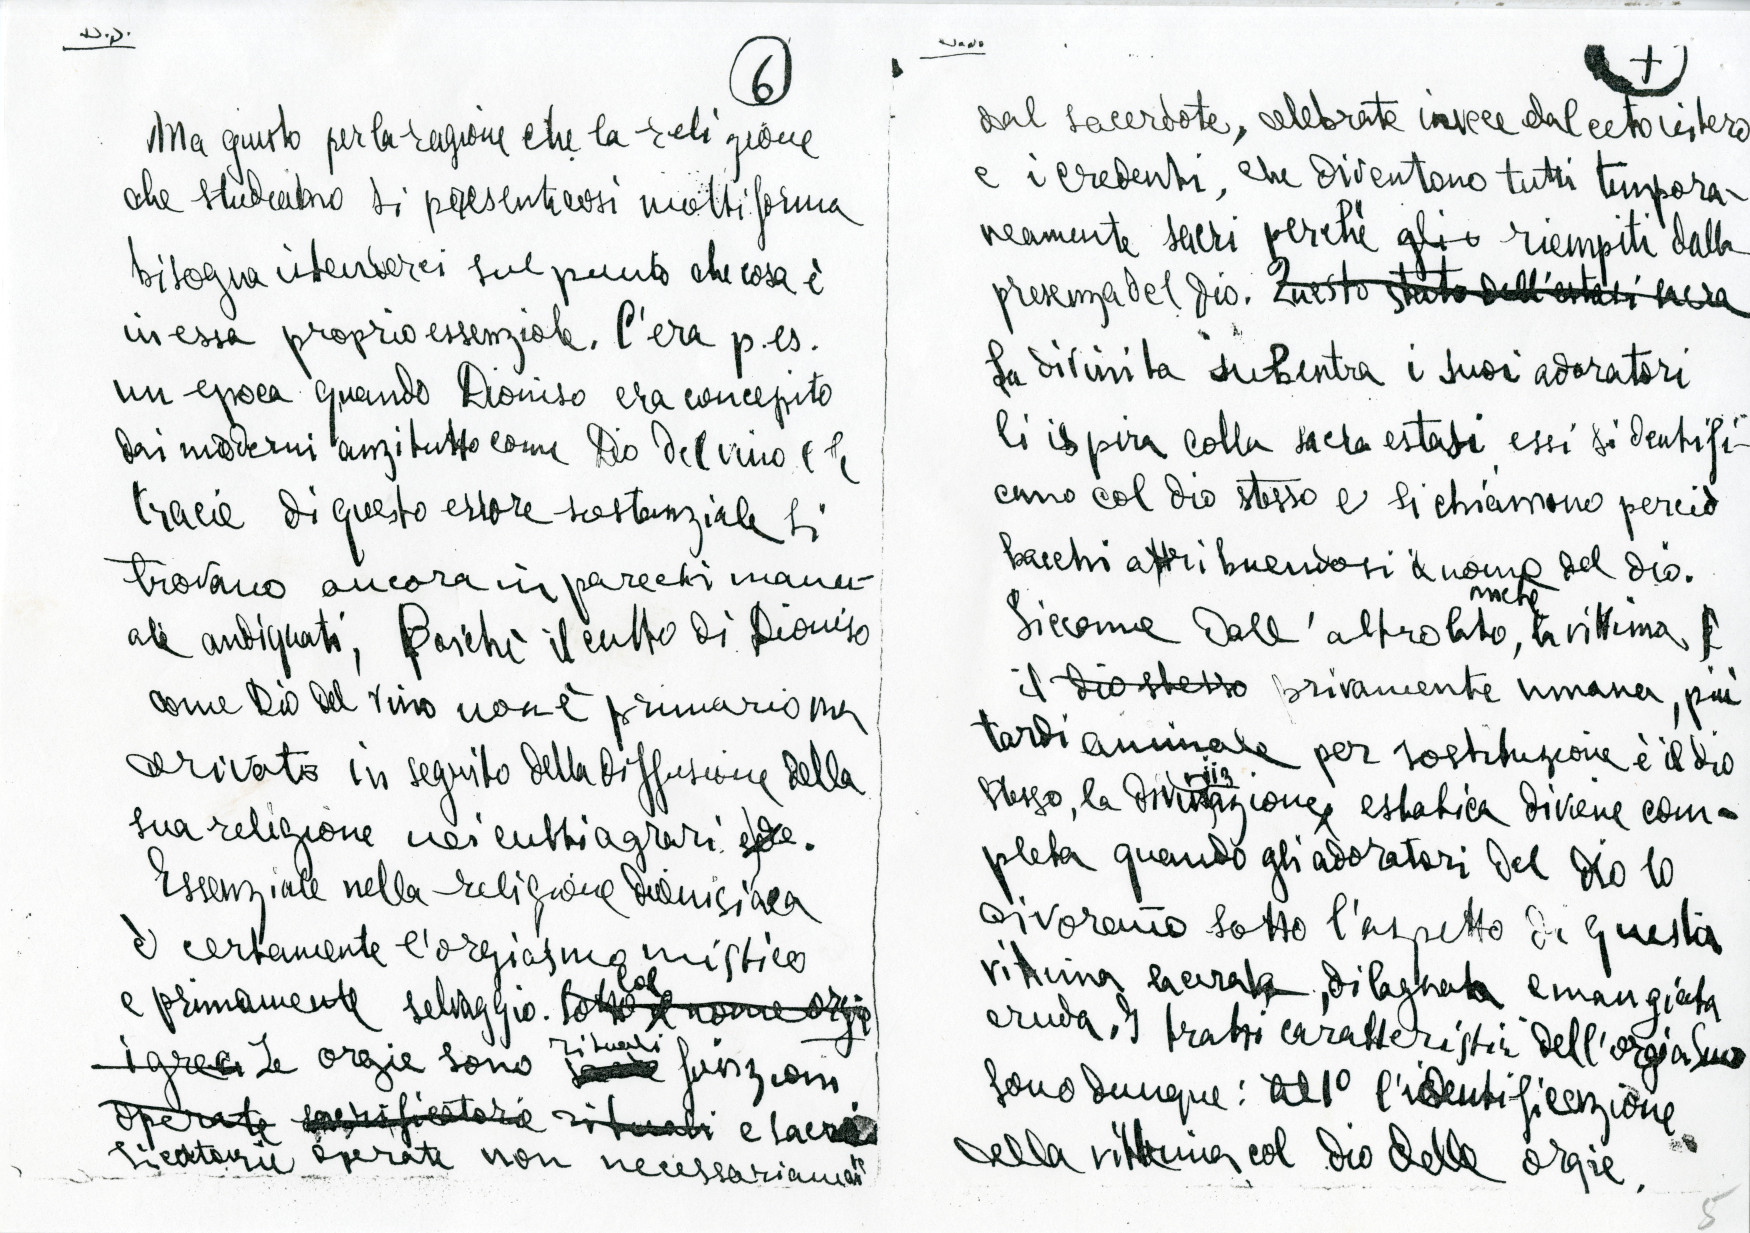 6
Ma giusto per la ragione che la religione
che studiamo si presenta così moltiforma
bisogna intenderci sul punto che cosa è
in essa proprio essenziale. C'era p. es.
un epoca quando Dioniso era concepito
dai moderni anzitutto come Dio del vino e le
tracie di questo errore sostanziale si
trovano ancora in parechi manu-
ali antiquati, Poichè il culto di Dioniso
come Dio del vino non è primario ma
derivato in seguito della diffusione della
sua religione nei culti agrari
Essenziale nella religione dionisiaca
è certamente l'orgiasmo mistico
e primamente selvaggio. Sotto col nome orgi
i greci Le orgie sono rituali funzioni
operate sacrificatorie rituali e sacri
ficatorie operate non necessariamente
+
dal sacerdote, celebrate invece dal ceto intero
e i credenti, che diventano tutti tempora-
neamente sacri perchè riempiti dalla
presenza del dio. Questo stato dell'estasi sacra
La divinita subentra i suoi adoratori
li ispira colla sacra estasi essi si dentifi-
cano col dio stesso e si chiamono perciò
bacchi attribuendosi il nome del dio.
Siccome dall'altro lato, anche la vittima, è
il dio stesso privamente umana, più
tardi animale per sostituzione è il dio
stesso, la divinizazione estatica diviene com-
pleta quando gli adoratori del dio lo
divorano sotto l'aspetto di questa
vittima lacerata, dilagnata e mangiata
cruda. I tratti caratteristici dell'orgiasmo
sono dunque: 1º l'identificazione
della vittima col dio delle orgie.
5